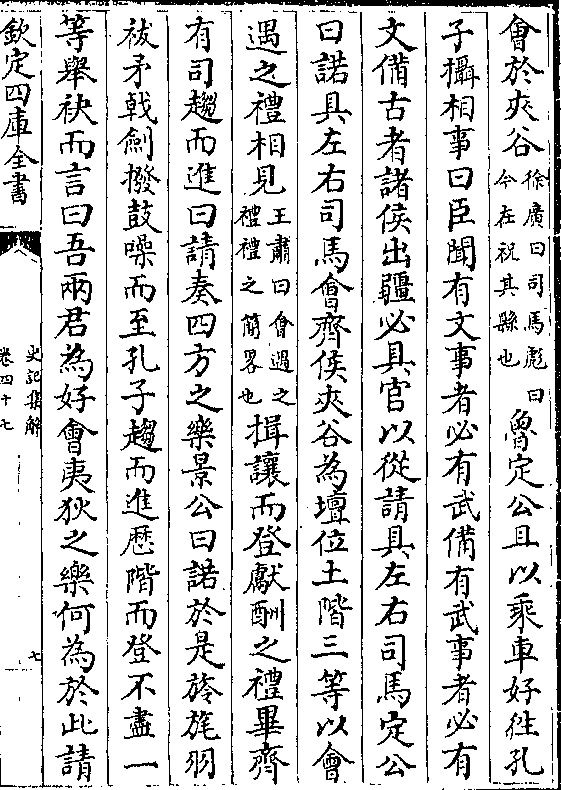 會於夾谷徐廣曰司馬彪曰今在祝其縣也魯定公且以乘車好徃孔
子攝相事曰臣聞有文事者必有武備有武事者必有
文備古者諸侯出疆必具官以從請具左右司馬定公
曰諾具左右司馬會齊侯夾谷為壇位土階三等以會
遇之禮相見王肅曰會遇之禮禮之簡畧也揖讓而登獻酬之禮畢齊
有司趨而進曰請奏四方之樂景公曰諾於是旍旄羽
袚矛戟劍撥鼓噪而至孔子趨而進歴階而登不盡一
等舉袂而言曰吾兩君為好會夷狄之樂何為於此請
欽定四庫全書
史記集解
卷四十七
七